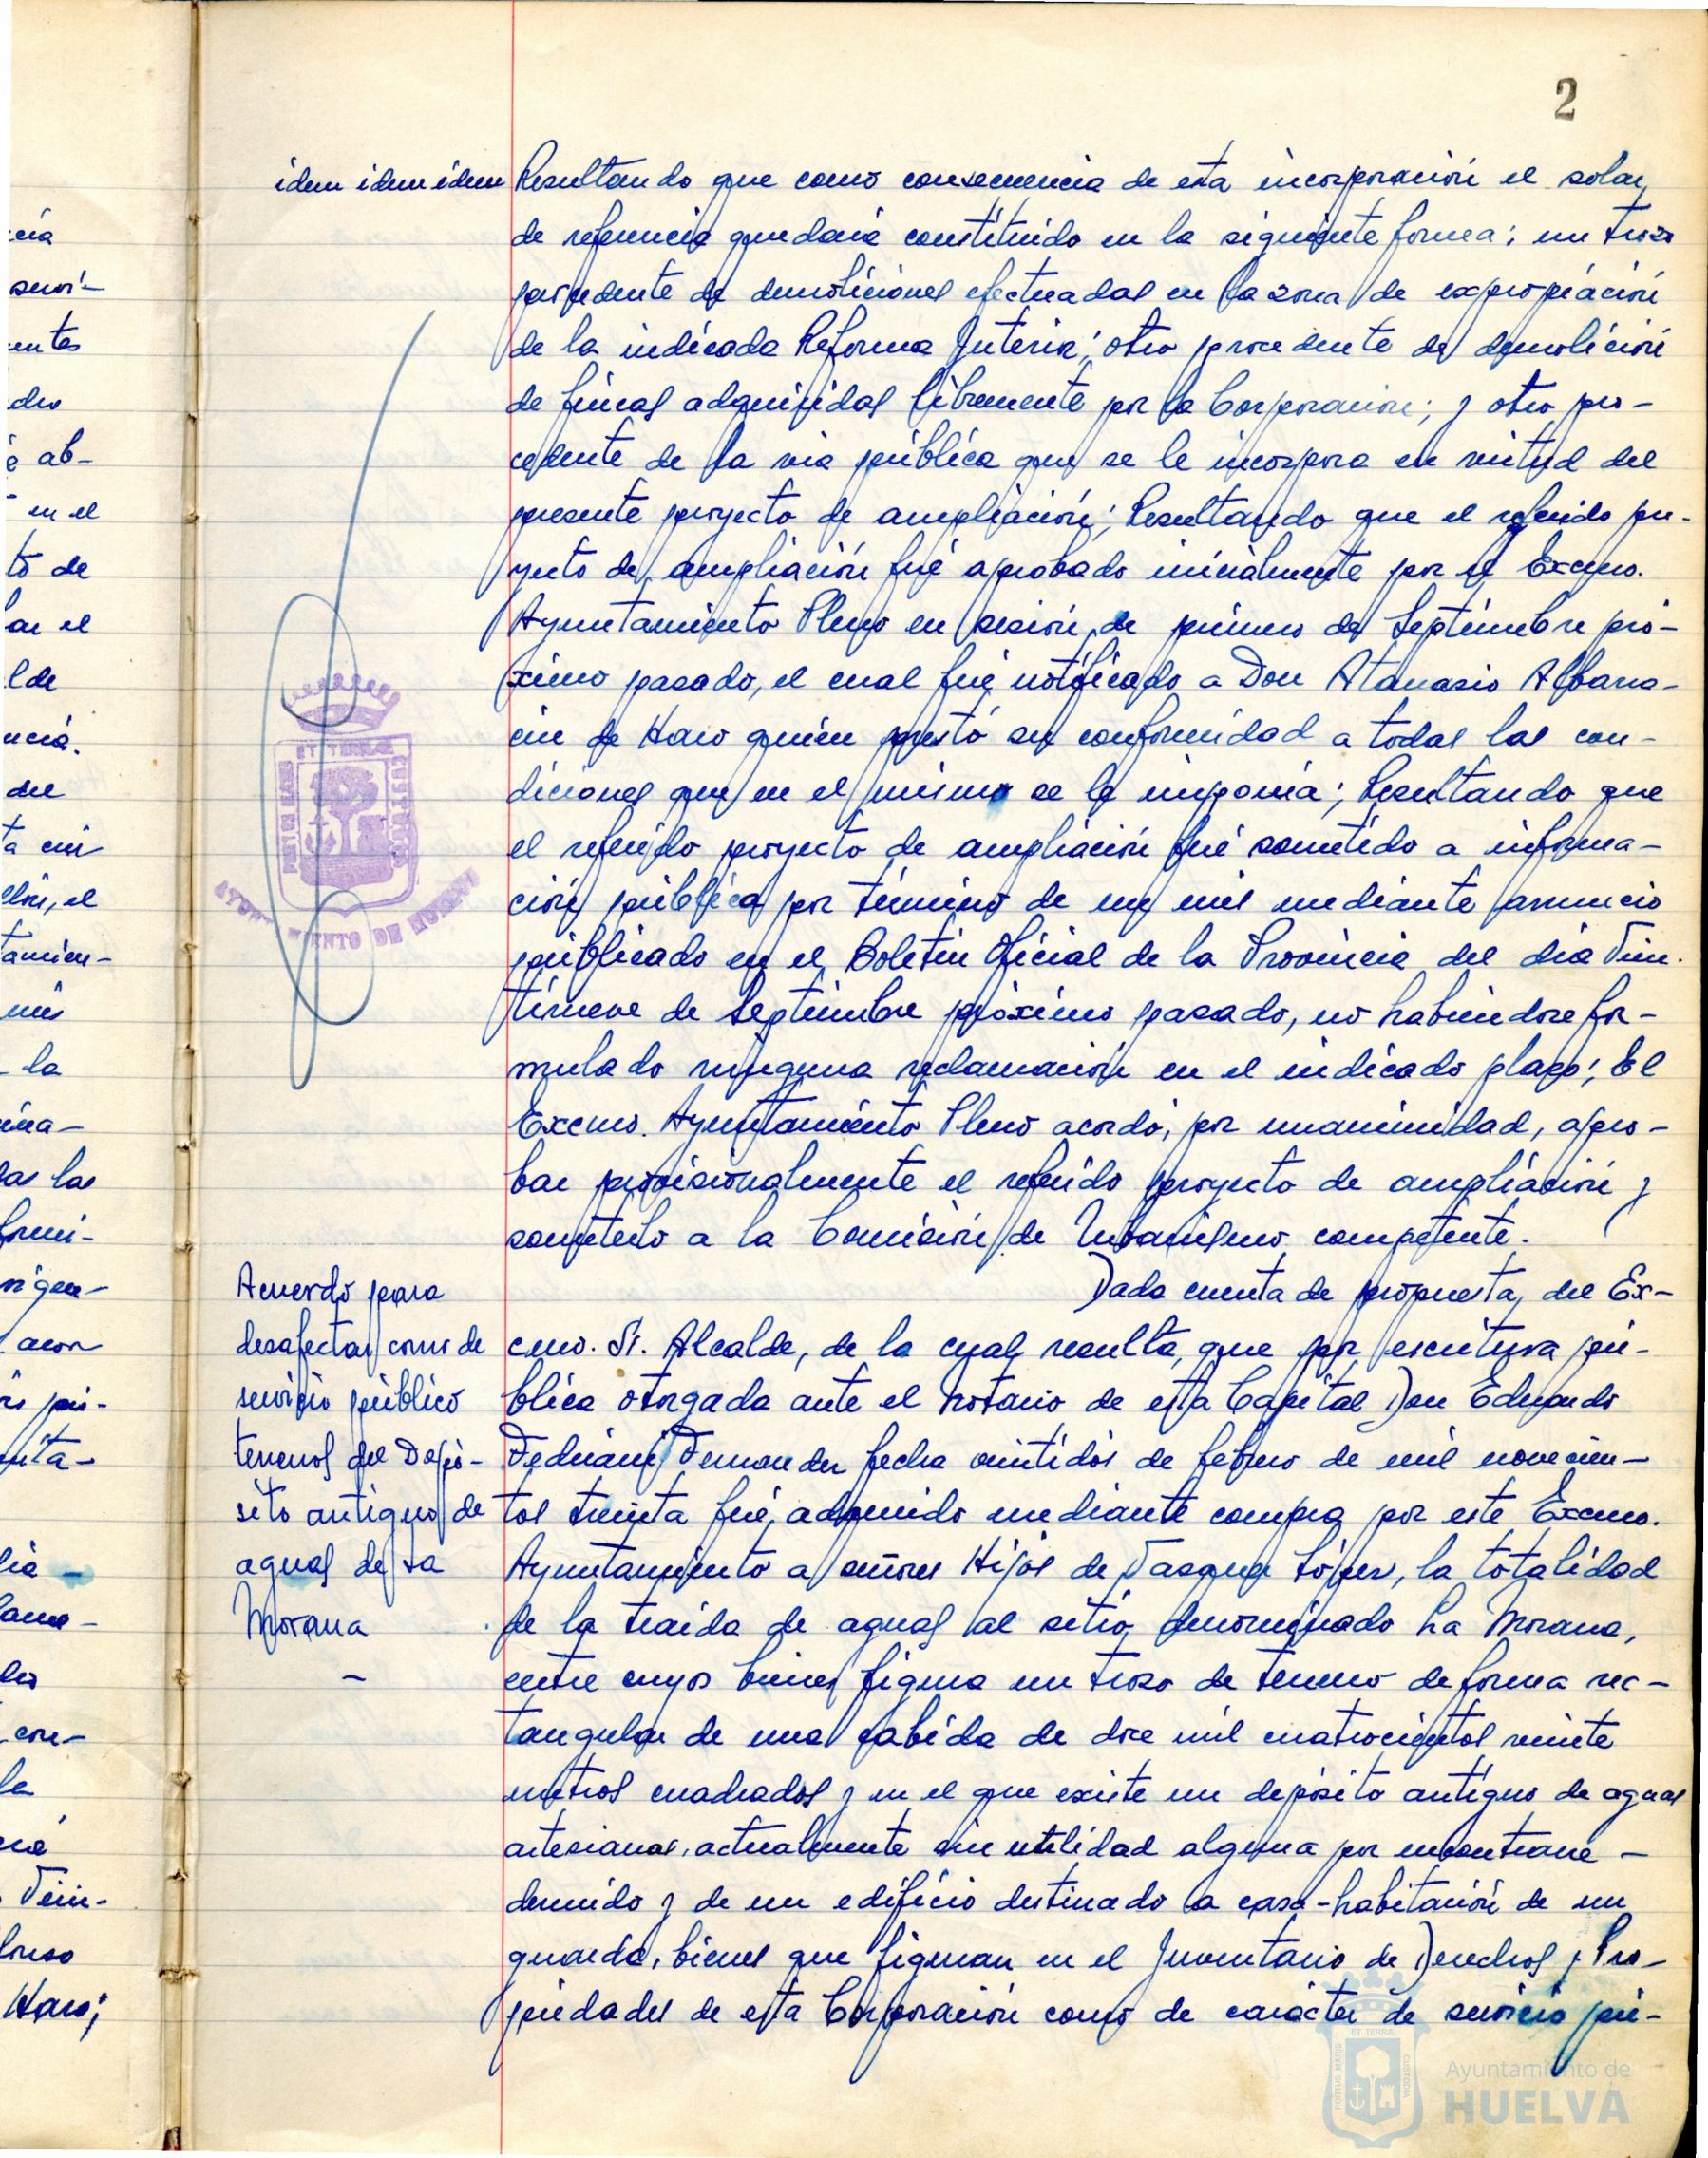 2
idem idem idem
Resultando que como consecuencia de esta incorporación el solar
de referencia quedaría constituido en la siguiente forma; un trozo
procedente de demoliciones efectuadas en la zona de expropiación
de la indicada Reforma Interior; otro procedente de demolición
de fincas adquiridas libremente por la Corporación; y otro pro-
cedente de la vía pública que se le incorpora en virtud del
presente proyecto de ampliación; Resultando que el referido pro-
yecto de ampliación fué aprobado inicialmente por el Excmo.
Ayuntamiento Pleno en sesión de primero de Septiembre pró-
ximo pasado, el cual fué notificado a Don Atanasio Albarra-
cin de Haro quien prestó su conformidad a todas las con-
diciones que en el mismo se le imponía; Resultando que
el referido proyecto de ampliación fué sometido a informa-
ción pública por término de un mes mediante anuncio
publicado en el Boletín Oficial de la Provincia del día Vein-
tinueve de Septiembre próximo pasado, no habiendose for-
mulado ninguna reclamación en el indicado plazo; El
Excmo. Ayuntamiento Pleno acordó, por unanimidad, apro-
bar provisionalmente el referido proyecto de ampliación y
someterlo a la Comisión de Urbanismo competente.
Acuerdo para
desafectar como de
servicio público
terrenos del Depó-
sito antiguo de
aguas de La
Morana
Dada cuenta de propuesta del Ex-
cmo. Sr. Alcalde, de la cual resulta, que por escritura pú-
blica otorgada ante el Notario de esta Capital Don Eduardo
Fedriani Fernandez fecha veintidós de febrero de mil novecien-
tos treinta fué adquirido mediante compra por este Excmo.
Ayuntamiento a señores Hijos de Vazquez López, la totalidad
de la traida de aguas al sitio denominado La Morana,
entre cuyos bienes figura un trozo de terreno de forma rec-
tangular de una cabida de doce mil cuatrocientos veinte
metros cuadrados y en el que existe un depósito antiguo de aguas
artesianas, actualmente sin utilidad alguna por encontrarse
derruido y de un edificio destinado a casa-habitación de un
guarda, bienes que figuran en el Inventario de Derechos y Pro-
piedades de esta Corporación como de carácter de servicio pú-
PORTUS MARIS ET TERRAE CUSTODIA
AYUNTAMIENTO DE HUELVA
Ayuntamiento de
HUELVA